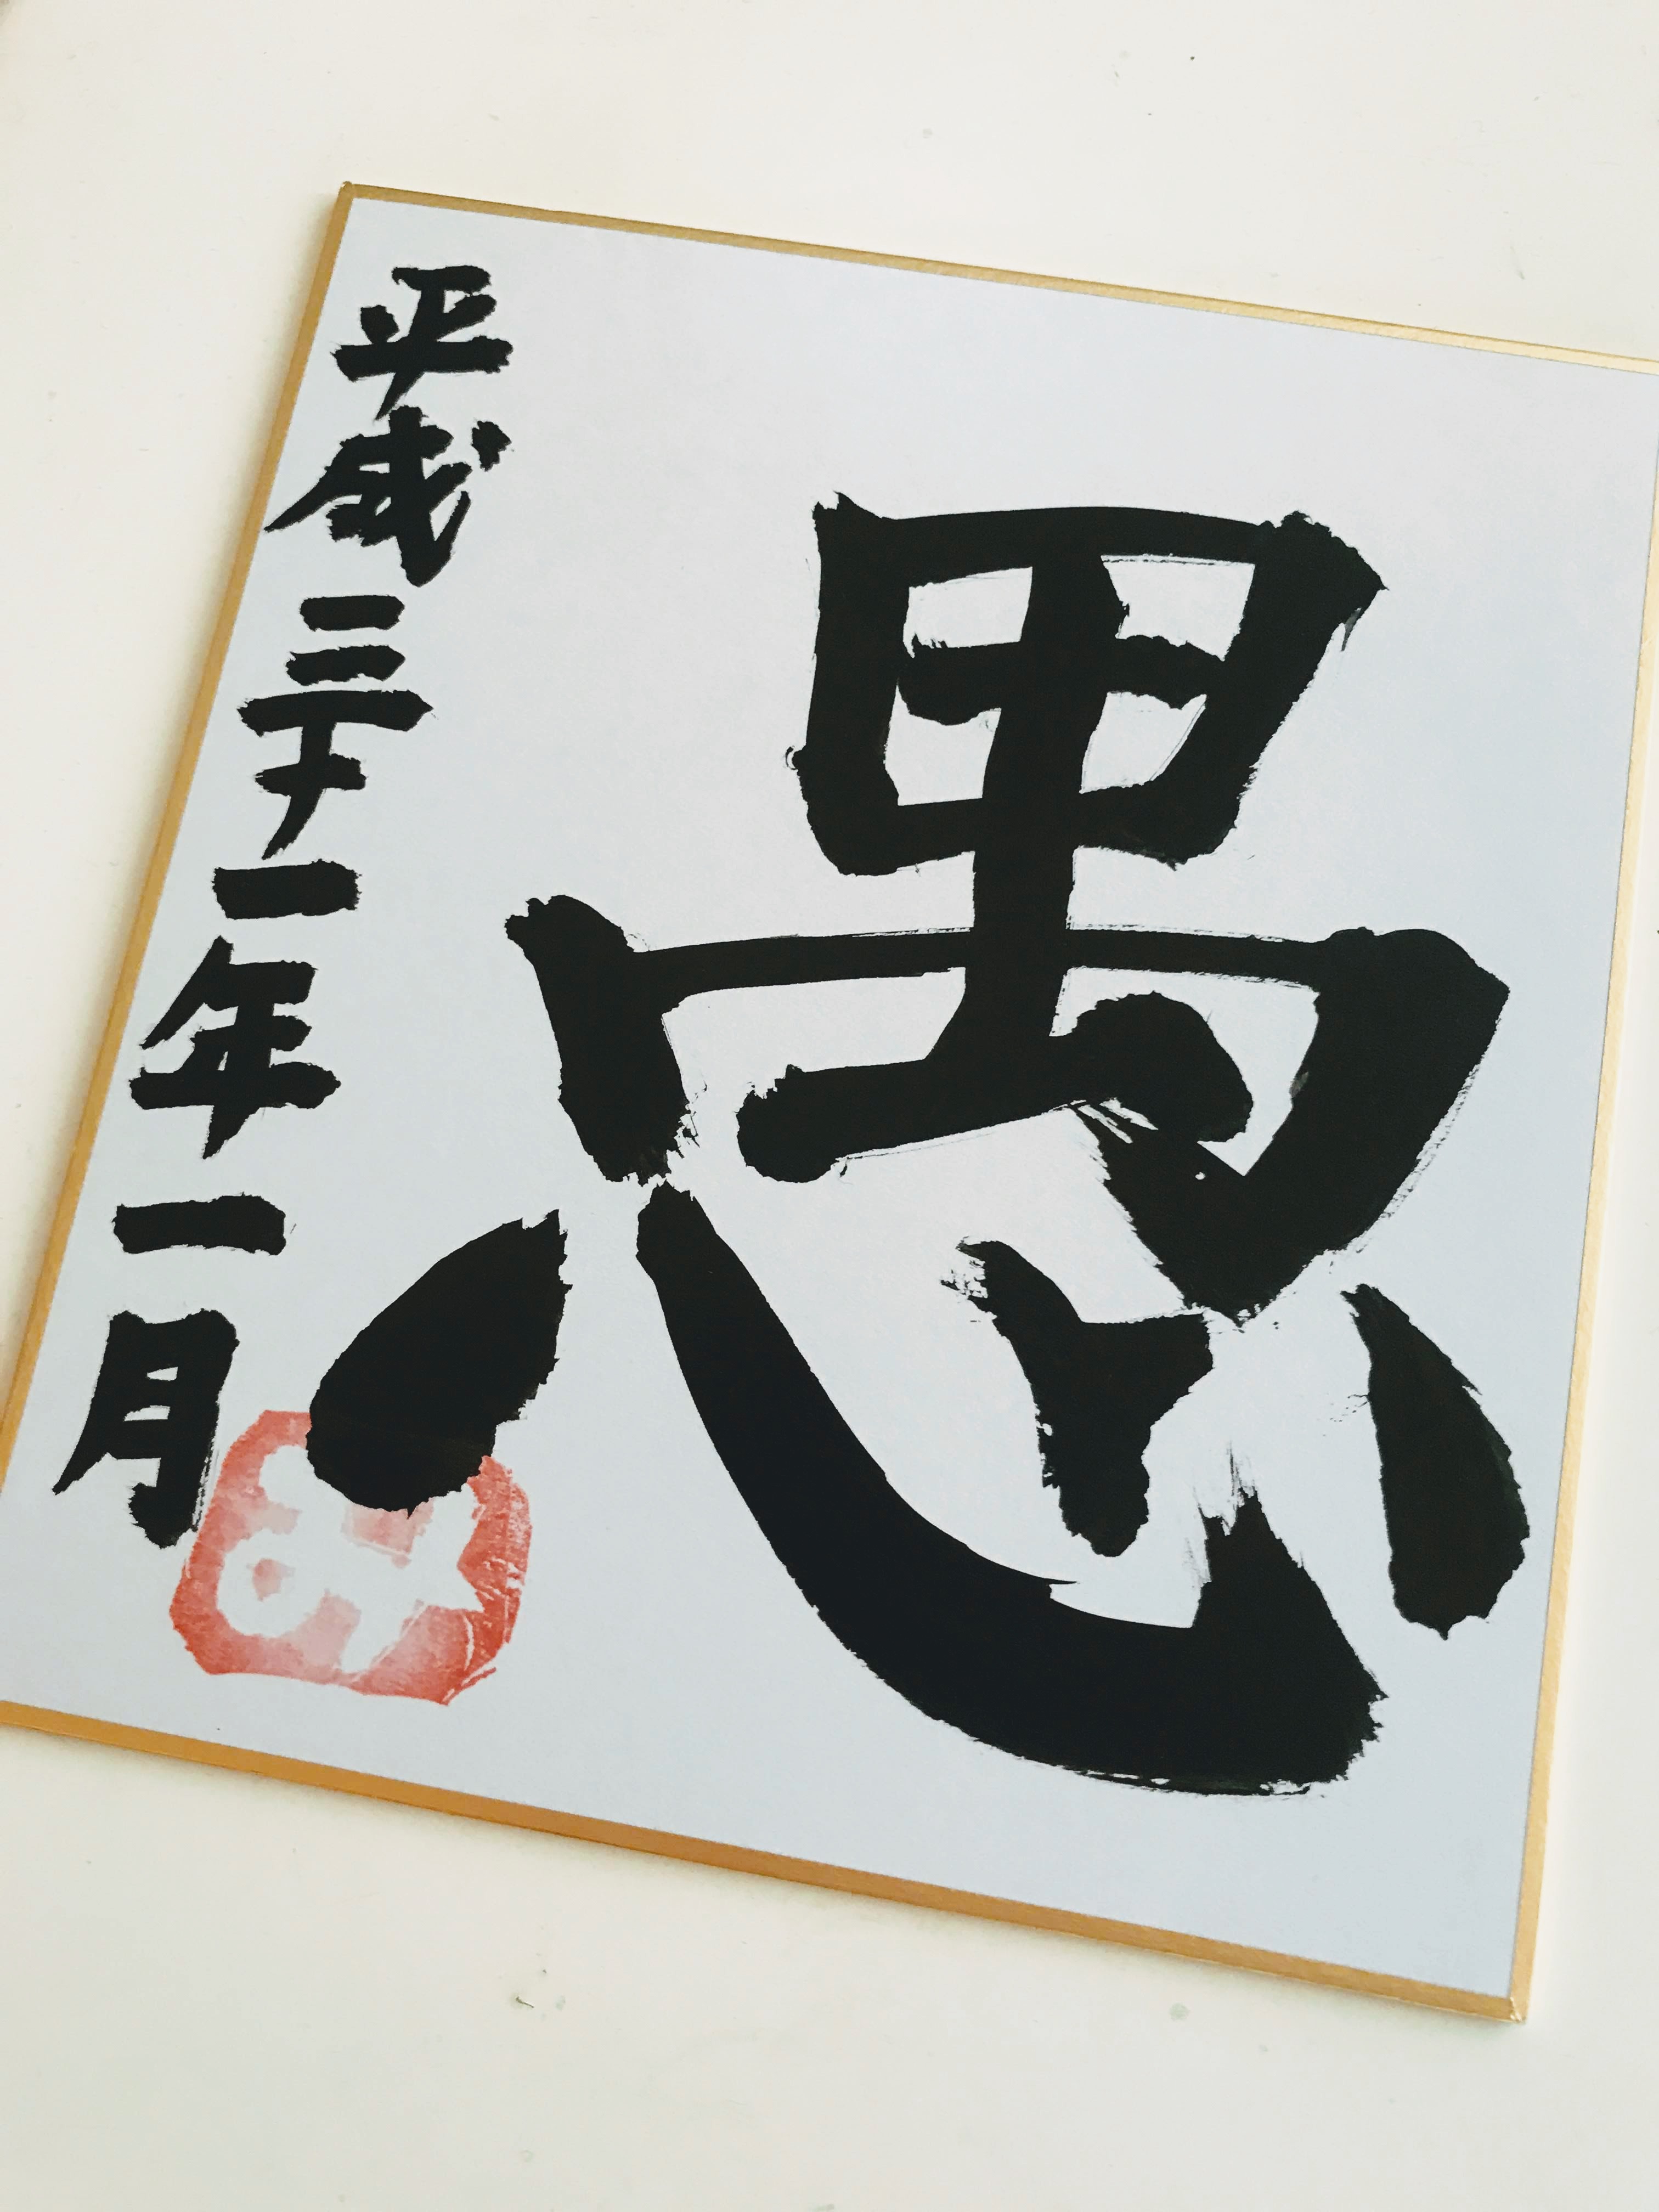 愚
平成三十一年一月